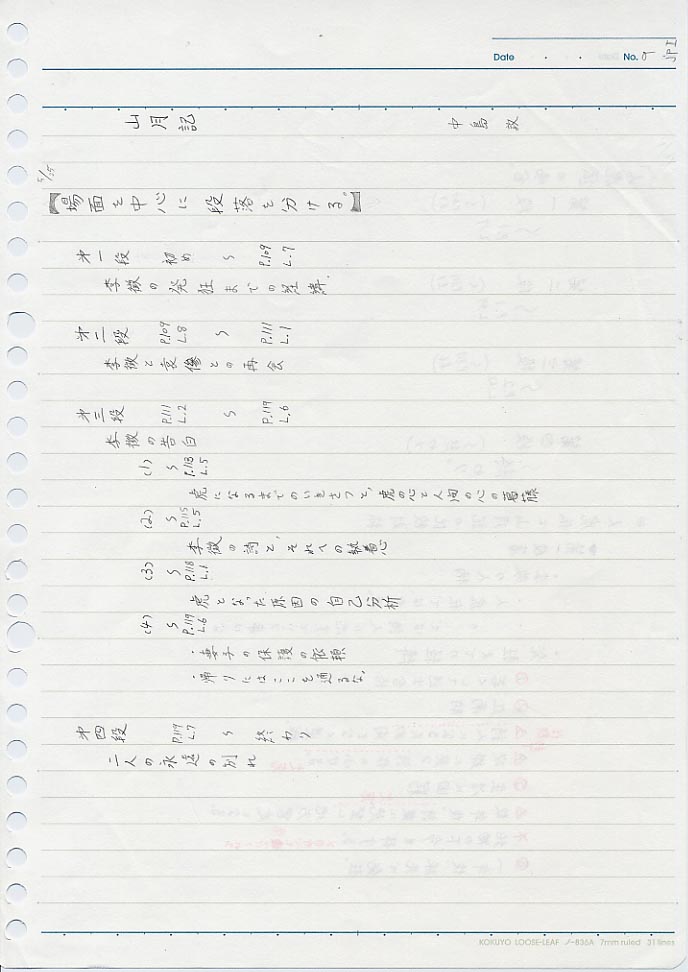 Date ・ ・ No. 9
JP I
山月記 中島敦
5/25
【場面を中心に段落を分ける。】
第一段 初め 〜 P.109 L.7
李徴の発狂までの経緯.
第二段 P.109 L.8 〜 P.111 L.1
李徴と袁傪との再会
第三段 P.111 L.2 〜 P.119 L.6
李徴の告白
(1) 〜 P.113 L.5
虎になるまでのいきさつと, 虎の心と人間の心の葛藤
(2) 〜 P.115 L.5
李徴の詩と, それへの執着心
(3) 〜 P.118 L.1
虎となった原因の自己分析
(4) 〜 P.119 L.6
・妻子の保護の依頼
・帰りにはここを通るな,
第四段 P.119 L.7 〜 終わり
二人の永遠の別れ
KOKUYO LOOSE-LEAF ノ-836A 7mm ruled 31 lines